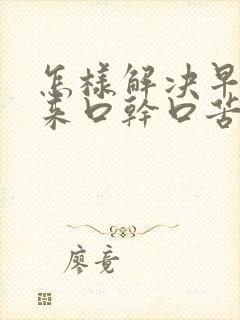 怎樣解决早
来口幹口苦
廖竟